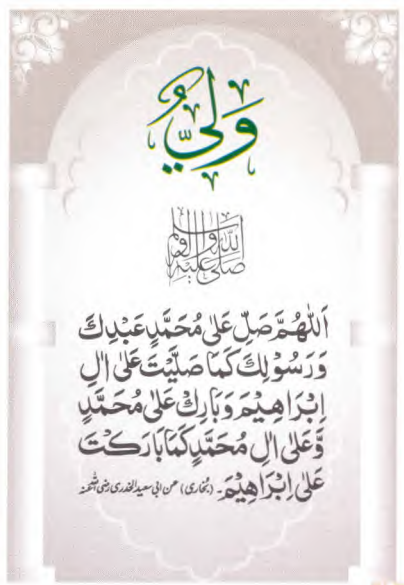 وَلِيٌّ
صَلَّى اللهُ عَلَيْهِ وَآلِهِ
اَللّٰهُمَّ صَلِّ عَلٰى مُحَمَّدٍ عَبْدِكَ
وَرَسُوْلِكَ كَمَا صَلَّيْتَ عَلٰى اٰلِ
اِبْرَاهِيْمَ وَبَارِكْ عَلٰى مُحَمَّدٍ
وَّعَلٰى اٰلِ مُحَمَّدٍ كَمَا بَارَكْتَ
عَلٰى اِبْرَاهِيْمَ۔ (بخاری) عن ابی سعید الخدری رضی اللہ عنہ